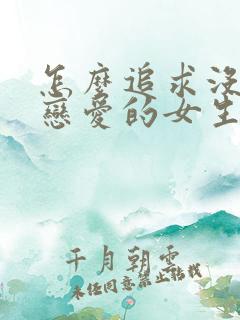 怎麼追求沒
戀愛的女生
千月朝雲
未任同意禁止轉載